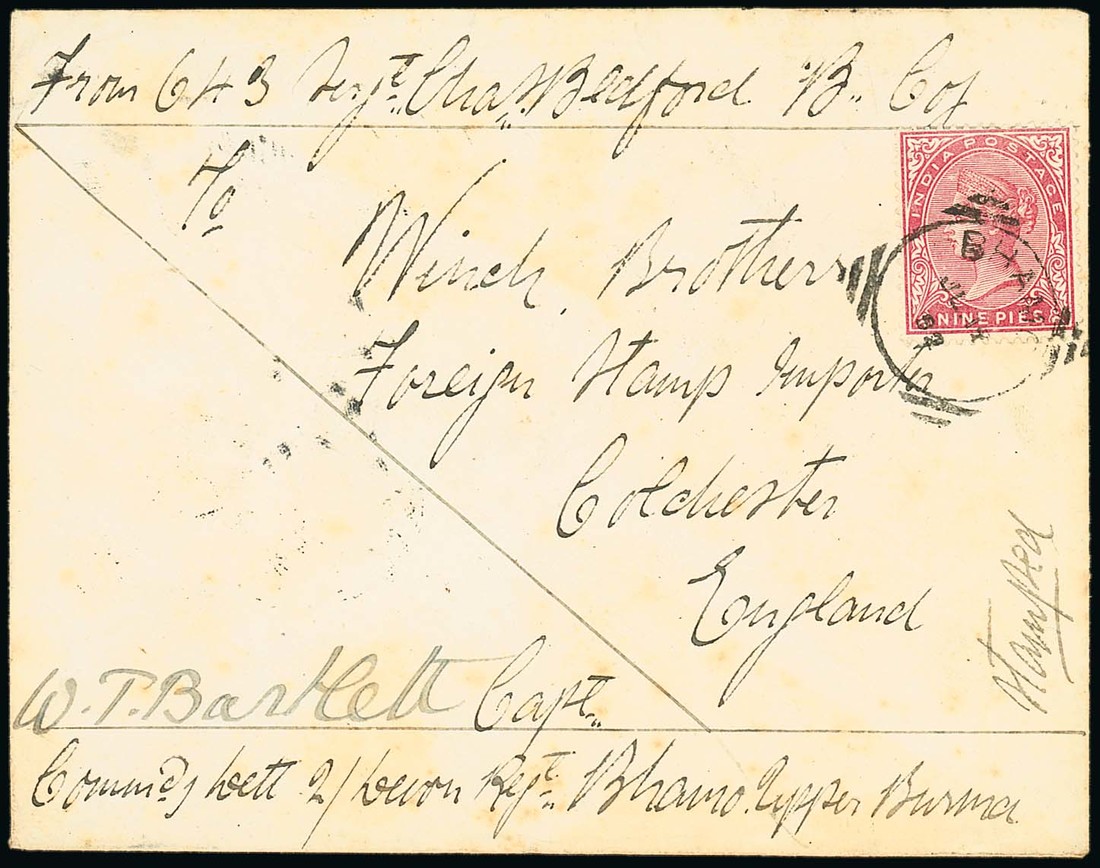 From 643 Sergt. Chas. Bedford "B" Coy
To
Winch Brothers
Foreign Stamp Importer
Colchester
England
Stamped
W. T. Bartlett Capt.
Commdg Dett 2/Devon Regt. Bhamo Upper Burma
INDIA POSTAGE
NINE PIES
BHAMO
JL
87